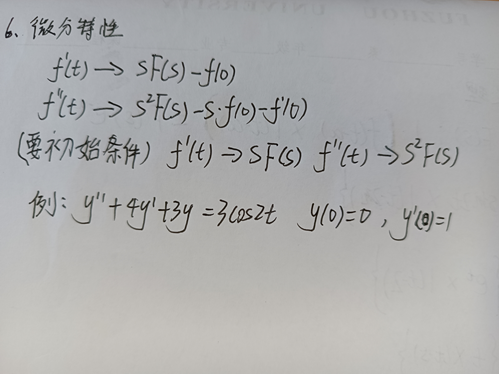 6、微分特性
f'(t) → SF(S) - f(0)
f''(t) → S²F(S) - S·f(0) - f'(0)
(要初始条件) f'(t) → SF(S) f''(t) → S²F(S)
例: y'' + 4y' + 3y = 3cos2t y(0)=0, y'(0)=1